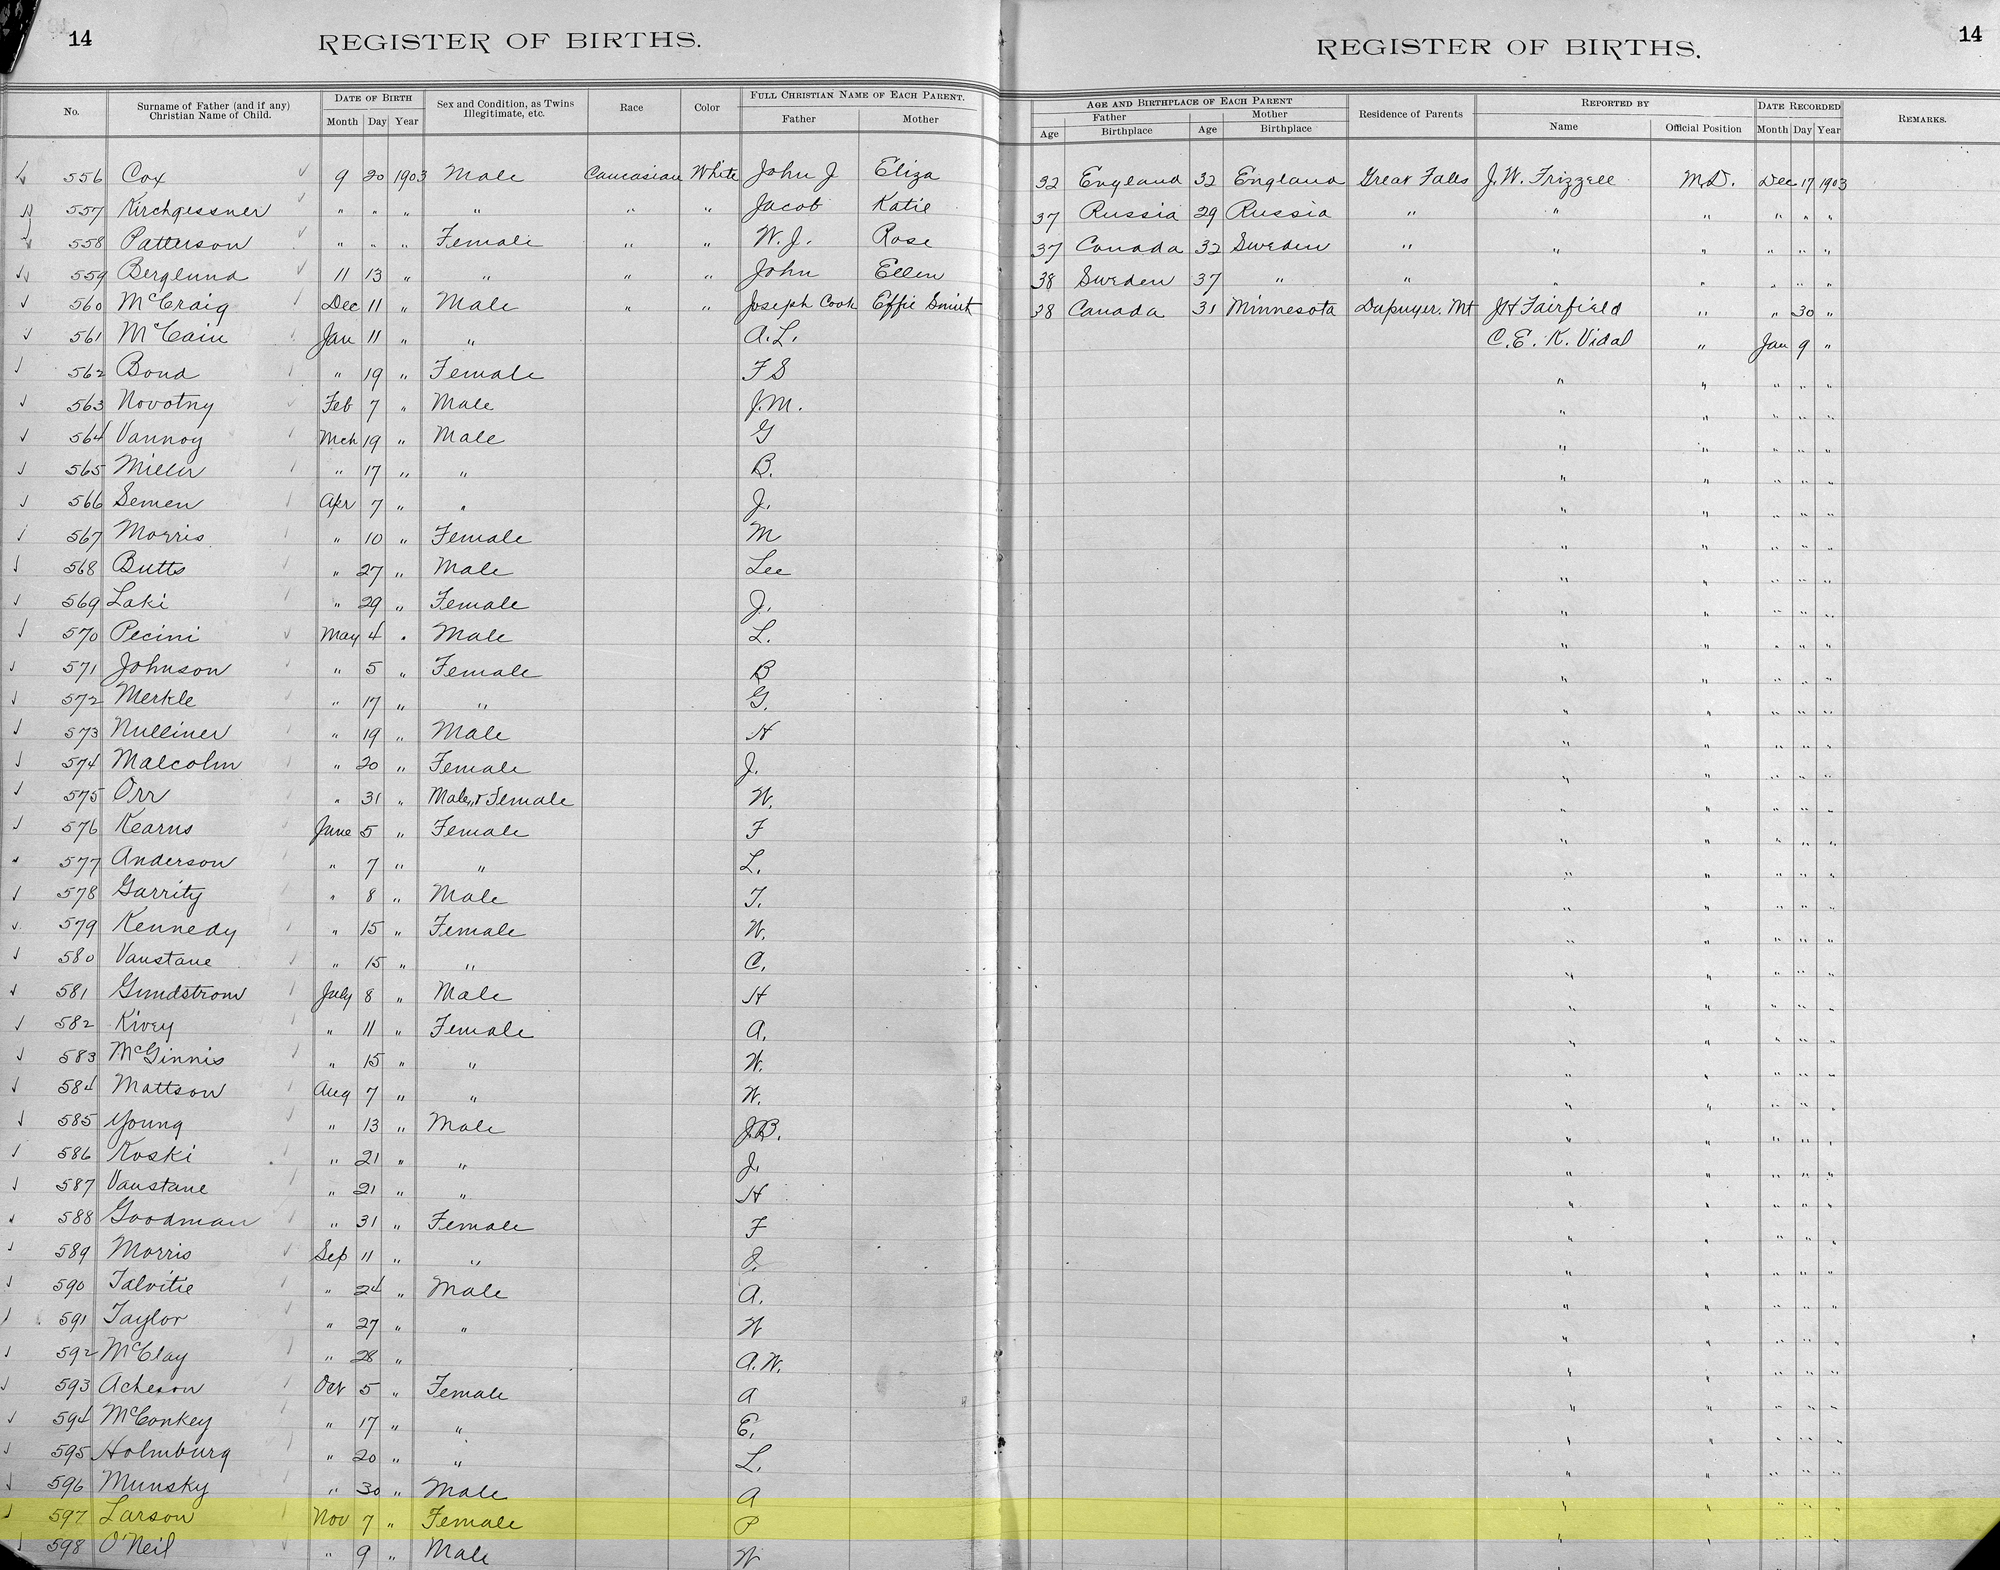 14 REGISTER OF BIRTHS. REGISTER OF BIRTHS. 14
No. Surname of Father (and if any) Christian Name of Child. DATE OF BIRTH Month Day Year Sex and Condition, as Twins Illegitimate, etc. Race Color FULL CHRISTIAN NAME OF EACH PARENT. Father Mother AGE AND BIRTHPLACE OF EACH PARENT Father Age Birthplace Mother Age Birthplace Residence of Parents REPORTED BY Name Official Position DATE RECORDED Month Day Year REMARKS.
556 Cox 9 20 1903 Male Caucasian White John J Eliza 32 England 32 England Great Falls J.W. Frizzell M.D. Dec 17 1903
557 Kirchgessner " " " " " " Jacob Katie 37 Russia 29 Russia " " " " " "
558 Patterson " " " Female " " W.J. Rose 37 Canada 32 Sweden " " " " " "
559 Berglund 11 13 " " " " John Ellen 38 Sweden 37 " " " " " " "
560 McCraig Dec 11 " Male " " Joseph Cook Effie Smith 38 Canada 31 Minnesota Dupuyer. Mt JH Fairfield " " 30 "
561 McCain Jan 11 " " A.L. C.E.K. Vidal " Jan 9 "
562 Bond " 19 " Female F S " " " " "
563 Novotny Feb 7 " Male J.M. " " " " "
564 Vannoy Mch 19 " Male G " " " " "
565 Miller " 17 " " B. " " " " "
566 Semen Apr 7 " " J. " " " " "
567 Morris " 10 " Female M " " " " "
568 Butts " 27 " Male Lee " " " " "
569 Laki " 29 " Female J. " " " " "
570 Pecini May 4 " Male L. " " " " "
571 Johnson " 5 " Female B " " " " "
572 Merkle " 17 " " G. " " " " "
573 Nulliner " 19 " Male H " " " " "
574 Malcolm " 20 " Female J. " " " " "
575 Orr " 31 " Male & Female W. " " " " "
576 Kearns June 5 " Female F " " " " "
577 Anderson " 7 " " L. " " " " "
578 Garrity " 8 " Male T. " " " " "
579 Kennedy " 15 " Female W. " " " " "
580 Vanstane " 15 " " C. " " " " "
581 Gundstrom July 8 " Male H " " " " "
582 Kivey " 11 " Female A. " " " " "
583 McGinnis " 15 " " W. " " " " "
584 Mattson Aug 7 " " W. " " " " "
585 Young " 13 " Male J.B. " " " " "
586 Koski " 21 " " J. " " " " "
587 Vanstane " 21 " " H " " " " "
588 Goodman " 31 " Female F " " " " "
589 Morris Sep 11 " " " " " " "
590 Talvitie " 24 " Male A. " " " " "
591 Taylor " 27 " " W " " " " "
592 McClay " 28 " A.W. " " " " "
593 Acheson Oct 5 " Female A " " " " "
594 McConkey " 17 " " E. " " " " "
595 Holmburg " 20 " " L. " " " " "
596 Munsky " 30 " Male A " " " " "
597 Larson Nov 7 " Female P " " " " "
598 O'Neil " 9 " Male W " " " " "